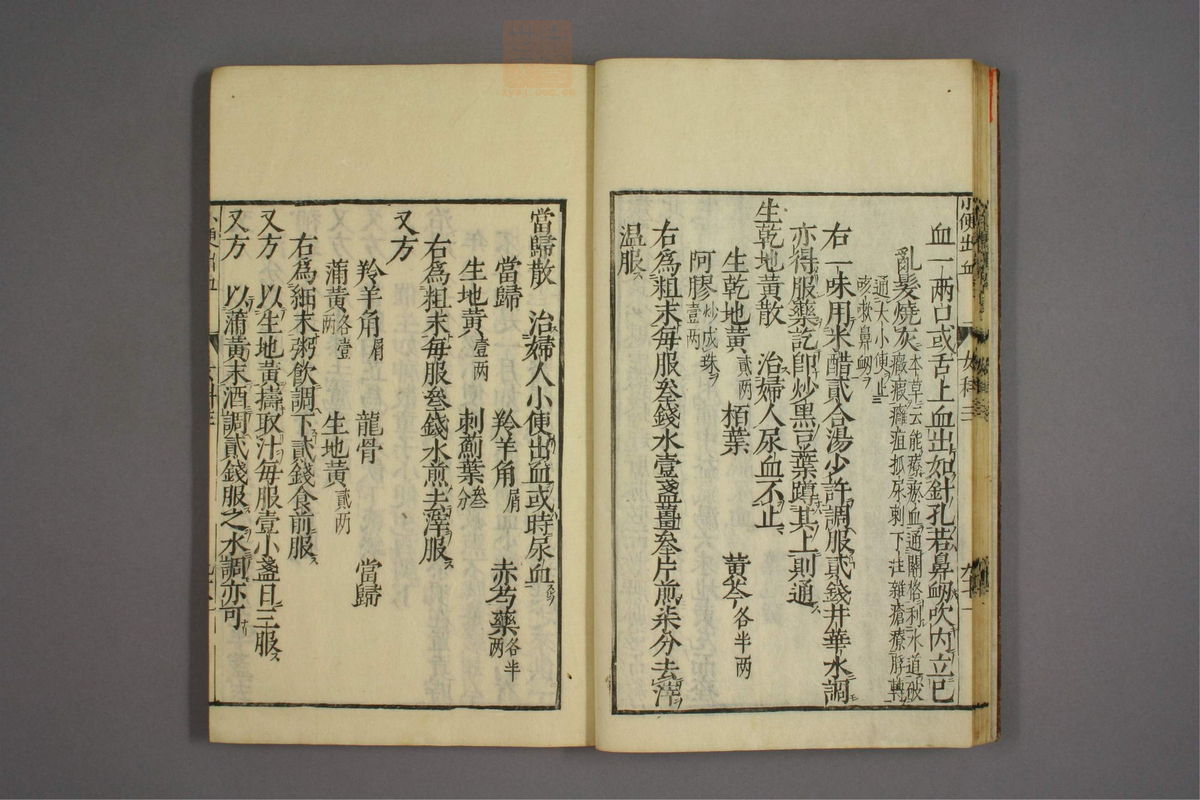 小便出血 女科三
血一兩口或舌上血出如針孔若鼻衂吹内立已
亂髮燒灰 本草云能療瘀血通關格利水道破
癥瘕癰疽狐尿刺下注雜瘡療胞轉
通大小便止
咳嗽鼻衂
右一味用米醋貳合湯少許調服貳錢井華水調
亦得服藥訖即炒黑豆葉蹲其上則通
生乾地黄散 治婦人尿血不止
生乾地黄貳兩 栢葉 黄芩各半兩
阿膠炒成珠壹兩
右爲粗末毎服叄錢水壹盞薑叄片煎柒分去滓
温服
當歸散 治婦人小便出血或時尿血
當歸 羚羊角屑 赤芍藥各半兩
生地黄壹兩 刺薊葉叄分
右爲粗末毎服叄錢水煎去滓服
又方
羚羊角屑 龍骨 當歸
蒲黄各壹兩 生地黄貳兩
右爲細末粥飲調下貳錢食前服
又方 以生地黄擣取汁毎服壹小盞日三服
又方 以蒲黄末酒調貳錢服之水調亦可